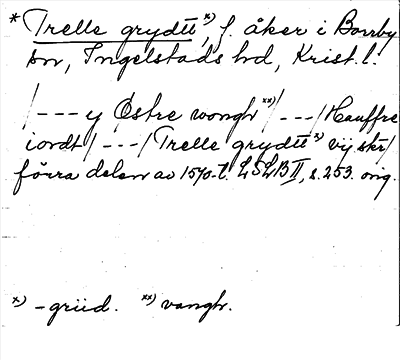 * Trelle grydtt x), f. åker i Borrby
sn, Ingelstads hd, Krist. l.
/--- y Østre wongh xx)/---/ Hauffre
iordt/---/ Trelle grydtt x) vij skr/
förra delen av 1570-t. LSLB II, s. 253. orig.
x) -grüd. xx) vangh.